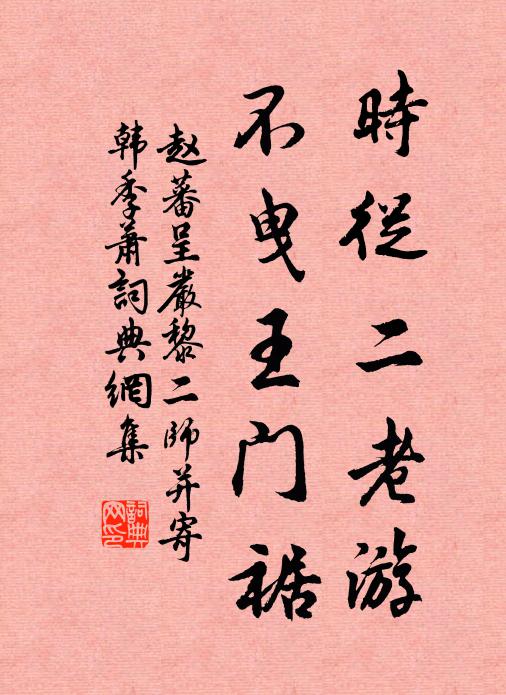 時從二老游
不曳王门裾
赵蕃呈嚴黎二師并寄
韩季萧詞典網集
詞典网印